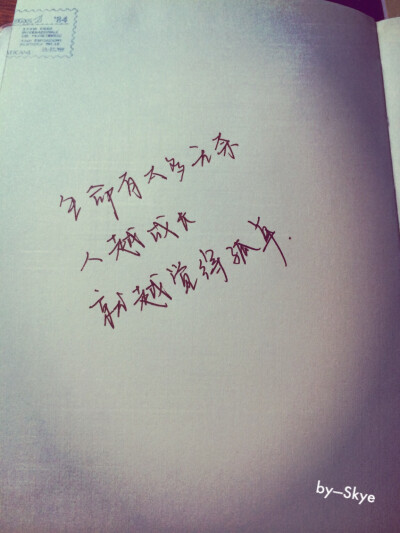 '84
生命有太多无奈
人越成长
就越觉得孤单.
by—Skye